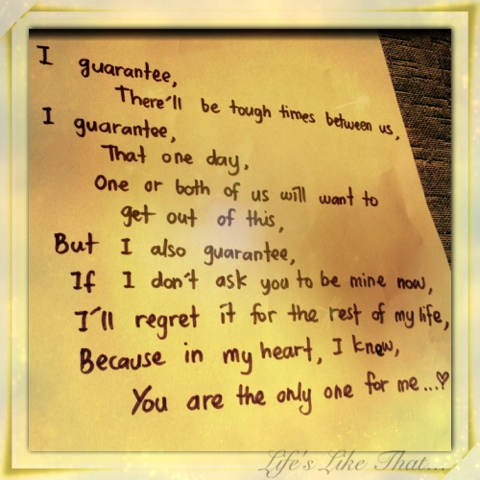 I guarantee,
There'll be tough times between us,
I guarantee,
That one day,
One or both of us will want to
get out of this,
But I also guarantee,
If I don't ask you to be mine now,
I'll regret it for the rest of my life,
Because in my heart, I know,
You are the only one for me...♡
Life's Like That...